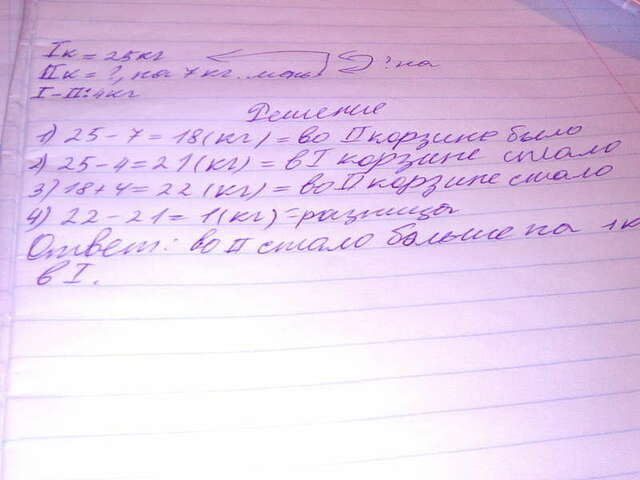 I к = 25 кг
II к = ?, на 7 кг. мень ? на
I - II: 4 кг
Решение
1) 25 - 7 = 18 (кг) = во II корзине было
2) 25 - 4 = 21 (кг) = в I корзине стало
3) 18 + 4 = 22 (кг) = во II корзине стало
4) 22 - 21 = 1 (кг) = разница
Ответ: во II стало больше на 1 к
в I.